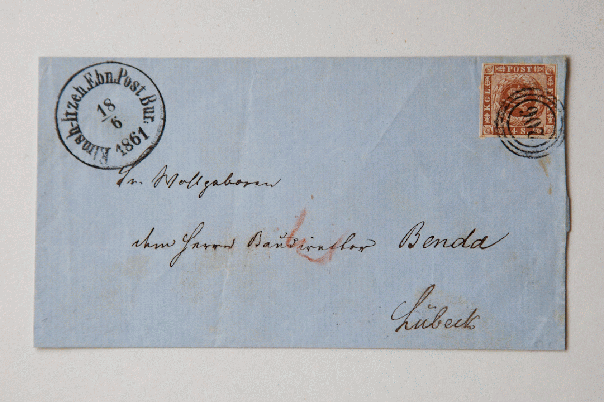 Elmsh-Itzeh.Ebn.Post.Bur.
18
6
1861
K.G.L. POST
4 S
Sr Wollgeboren
dem Herrn Baudirector Benda
Lübeck